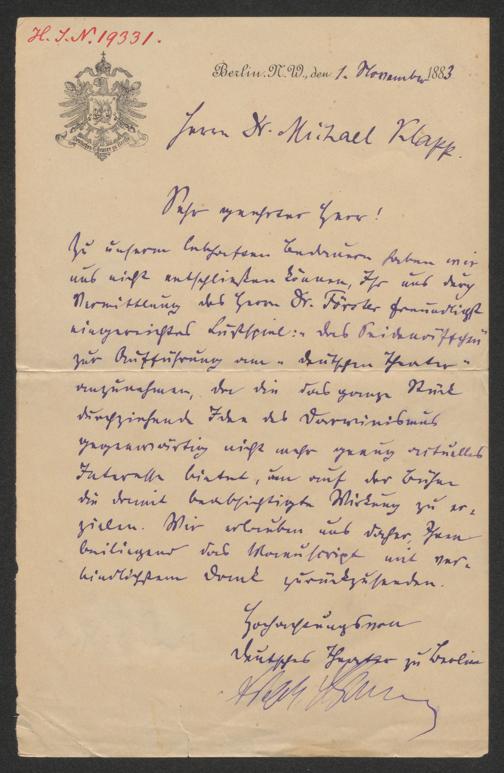 H. I. N. 19331.
Berlin. N. W., den 1. November 1883
Herrn Dr. Michael Klapp.
Sehr geehrter Herr!
Zu unserm lebhaften Bedauern haben wir
uns nicht entschließen können, Ihr uns durch
Vermittlung des Herrn Dr. Förster freundlichst
eingereichtes Lustspiel: „das
zur Aufführung am „deutschen Theater"
anzunehmen, da die das ganze Stück
durchziehende Idee des Darwinismus
gegenwärtig nicht mehr genug actuelles
Interesse bietet, um auf der Bühne
die damit beabsichtigte Wirkung zu er-
zielen. Wir erlauben uns daher, Ihnen
beiliegend das Manuscript mit ver-
bindlichstem Dank zurückzusenden.
Hochachtungsvoll
Deutsches Theater zu Berlin